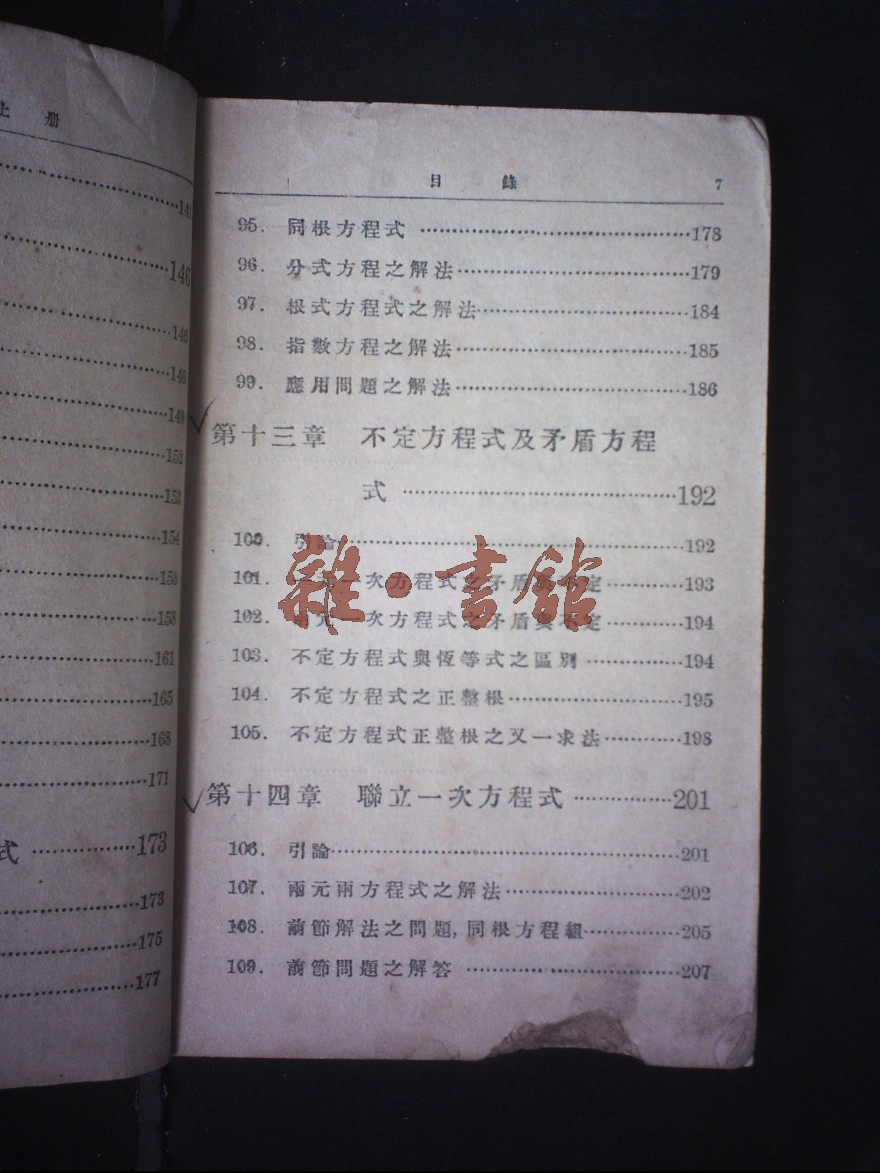 上 册
141
146
146
148
149
152
153
154
158
158
161
165
168
171
式 173
173
175
177
目 錄 7
95. 同根方程式 178
96. 分式方程之解法 179
97. 根式方程式之解法 184
98. 指數方程之解法 185
99. 應用問題之解法 186
第十三章 不定方程式及矛盾方程
式 192
100. 引論 192
101. 一元一次方程式之矛盾與不定 193
102. 兩元一次方程式之矛盾與不定 194
103. 不定方程式與恆等式之區別 194
104. 不定方程式之正整根 195
105. 不定方程式正整根之又一求法 198
雜·書館
第十四章 聯立一次方程式 201
106. 引論 201
107. 兩元兩方程式之解法 202
108. 前節解法之問題,同根方程組 205
109. 前節問題之解答 207